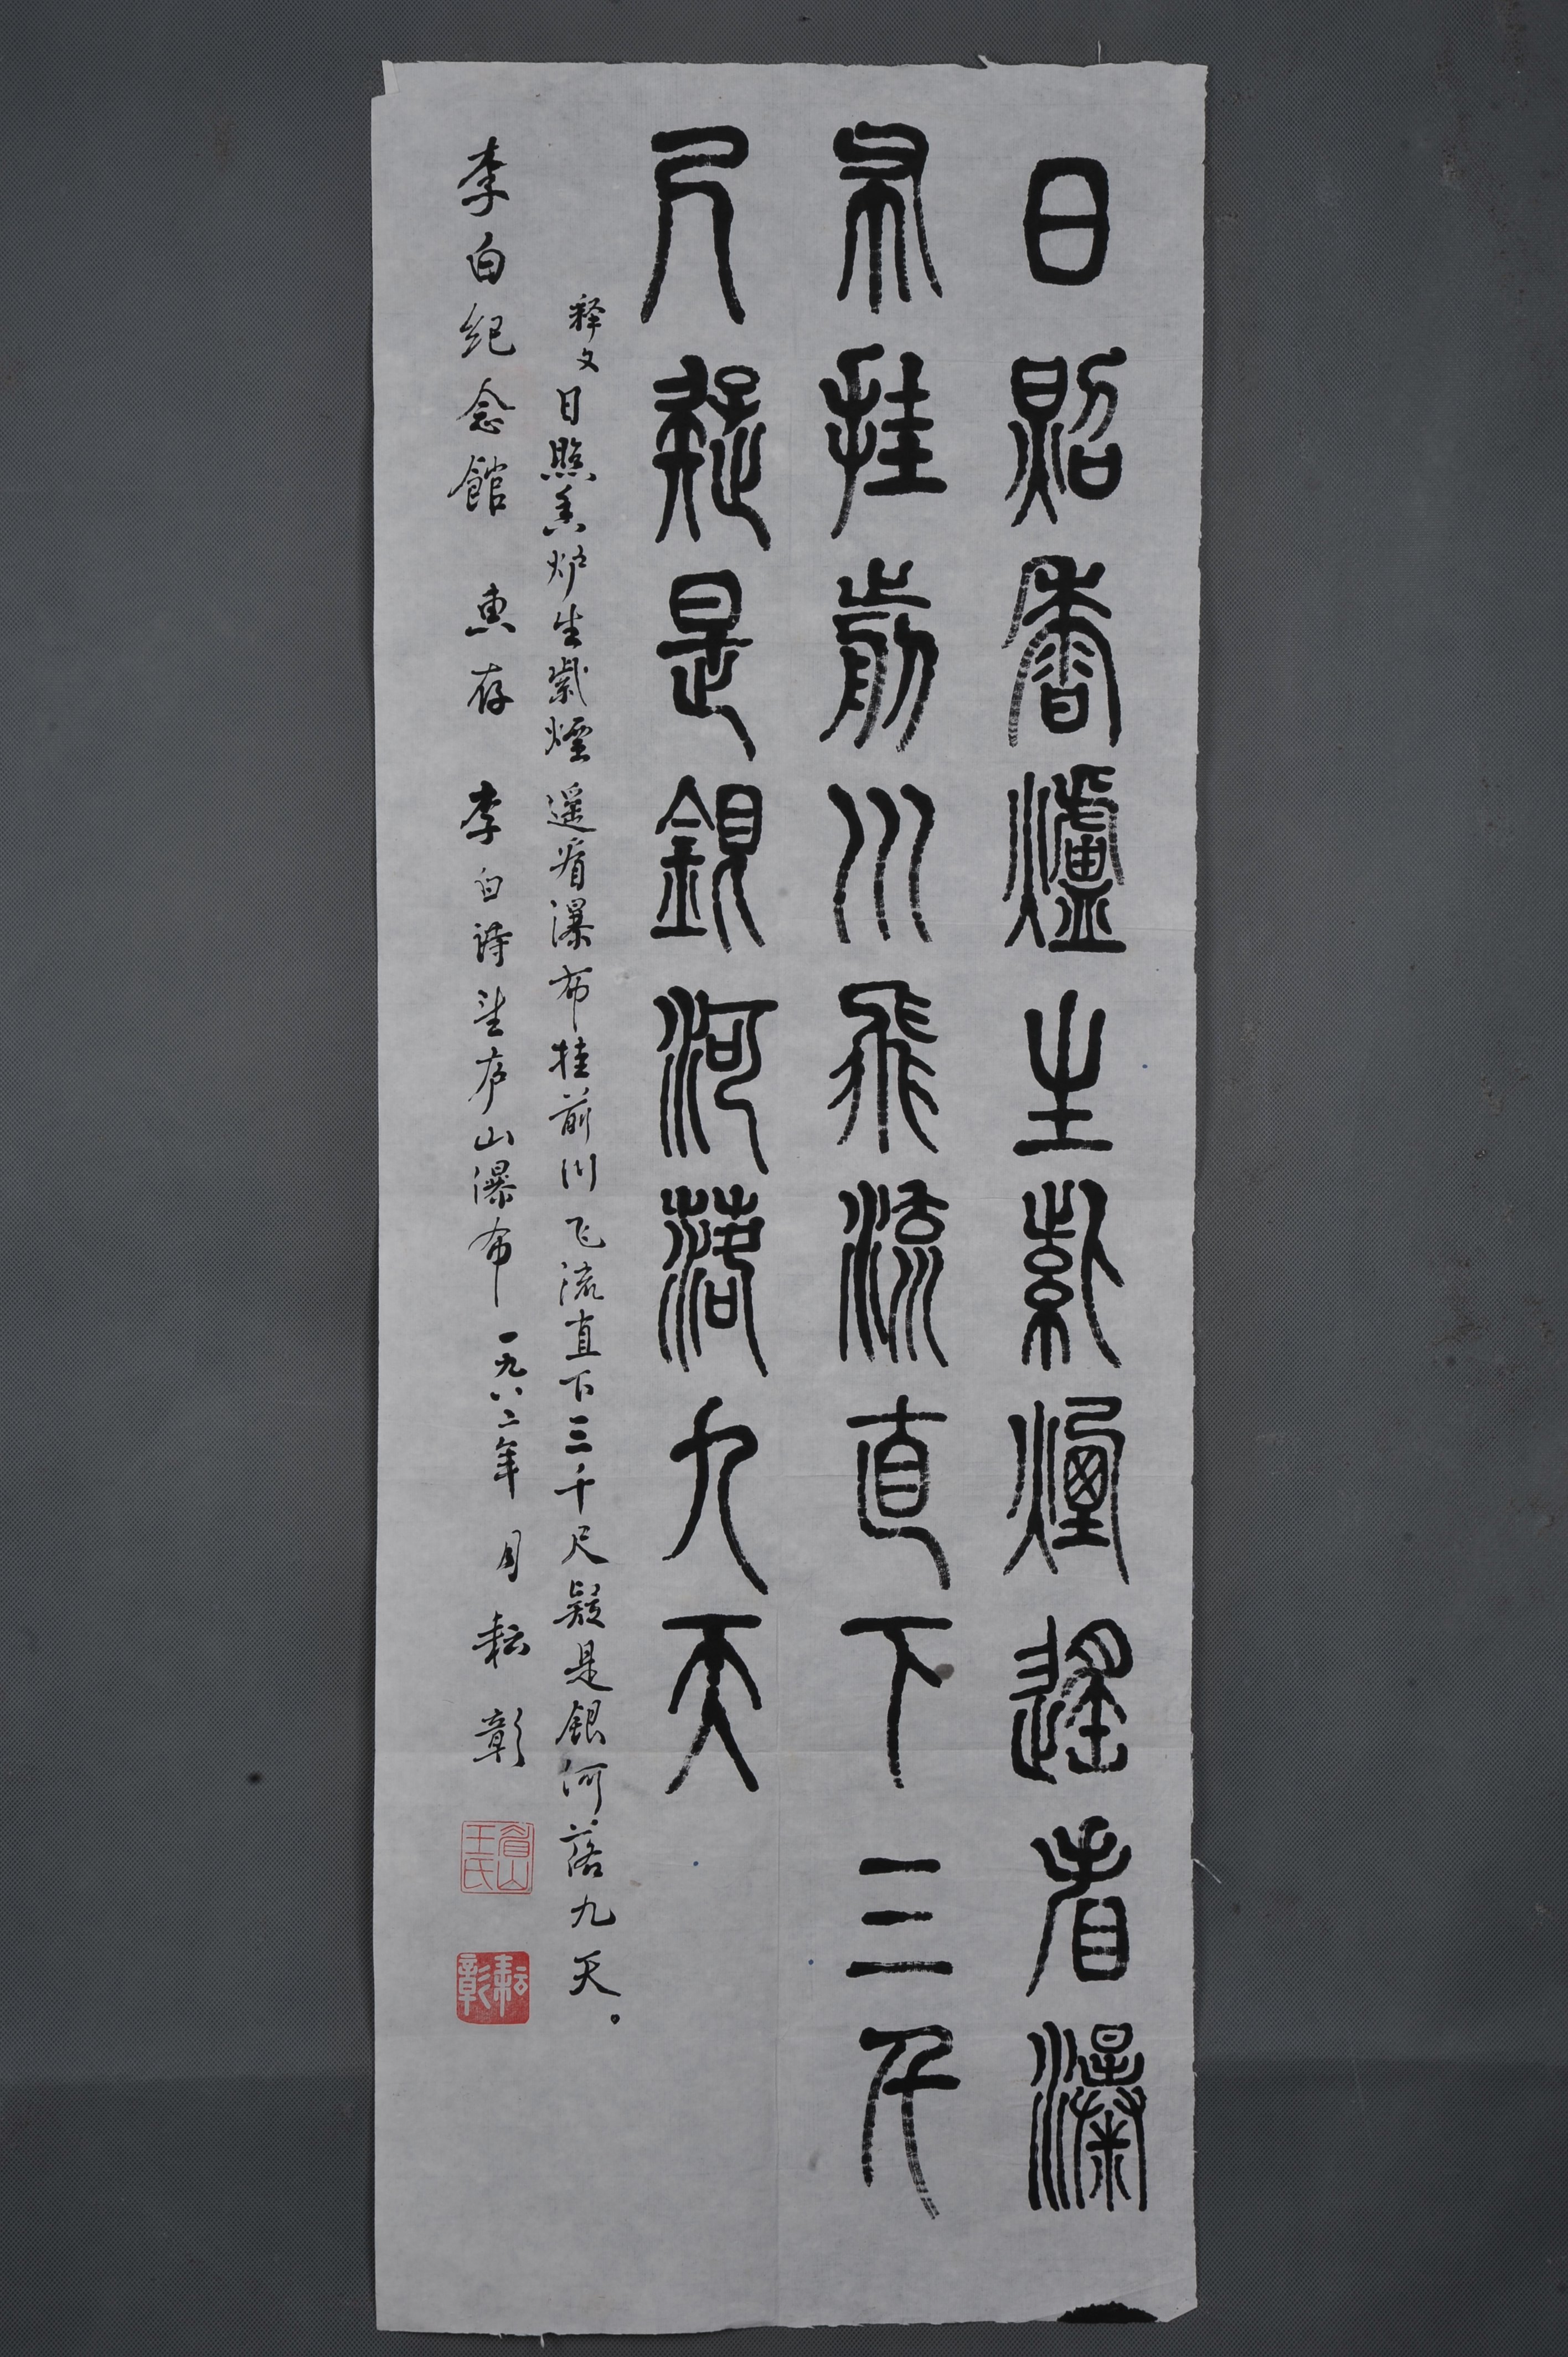 日照香爐生紫煙遥看瀑
布挂前川飛流直下三千
尺疑是銀河落九天
释文 日照香炉生紫煙 遥看瀑布挂前川 飞流直下三千尺 疑是銀河落九天。
李白纪念館 惠存 李白诗望庐山瀑布 一九八二年 月 耘彰
眉山王氏
耘彰